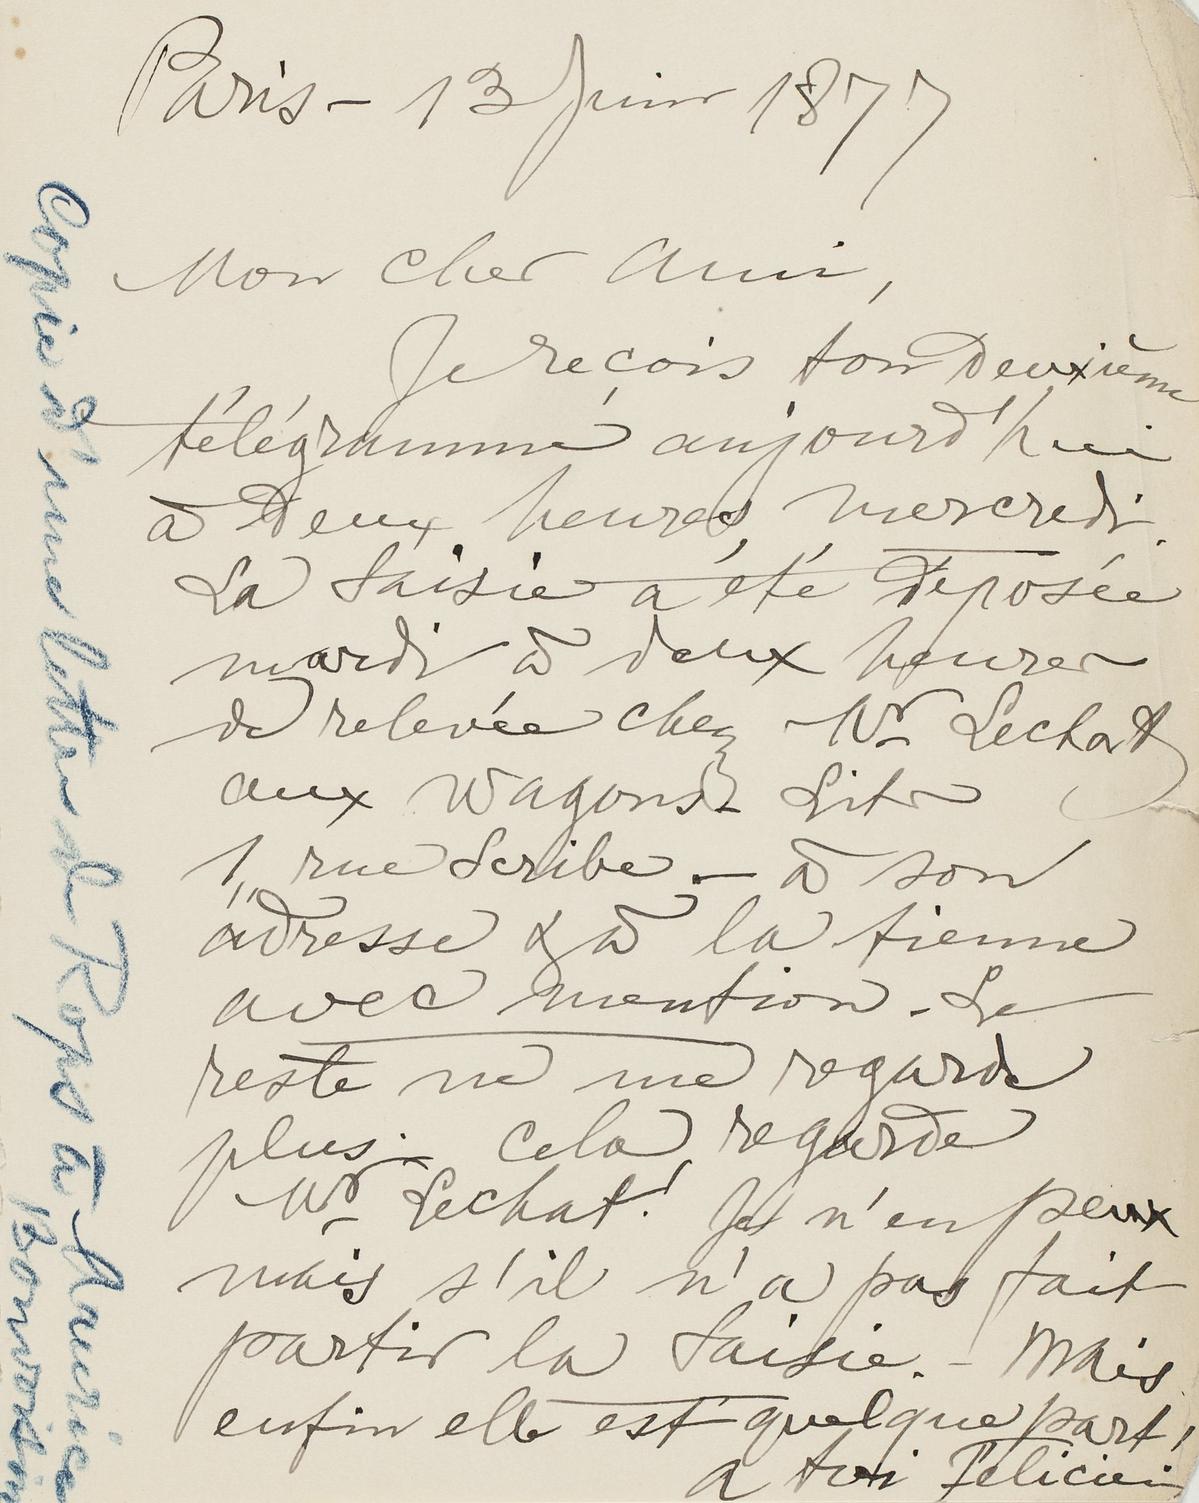 Paris – 13 Juin 1877
Mon cher Ami,
Je reçois ton Deuxième
télégramme aujourd'hui
à Deux heures, mercredi.
La Saisie a été Déposée
mardi à deux heures
de relevée chez Mr Lechat
aux Wagons-Lits
1, rue Scribe – à son
adresse & à la tienne
avec mention. Le
reste ne me regarde
plus. – cela regarde
Mr Lechat! Je n'en peux
mais s'il n'a pas fait
partir la Saisie. – Mais
enfin elle est quelque part!
a toi Félicien
Copie d'une lettre de Rops à Maurice
Bonvoisin